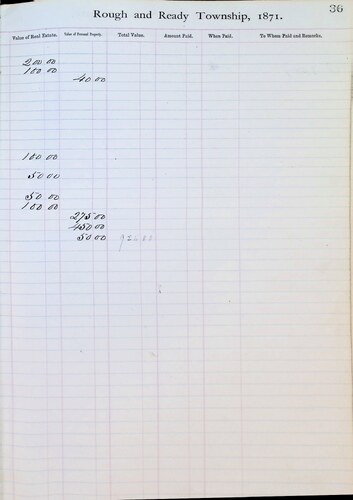 36
Rough and Ready Township, 1871.
Value of Real Estate. Value of Personal Property. Total Value. Amount Paid. When Paid. To Whom Paid and Remarks.
200 00
100 00
40 00
100 00
50 00
50 00
100 00
275 00
450 00
50 00